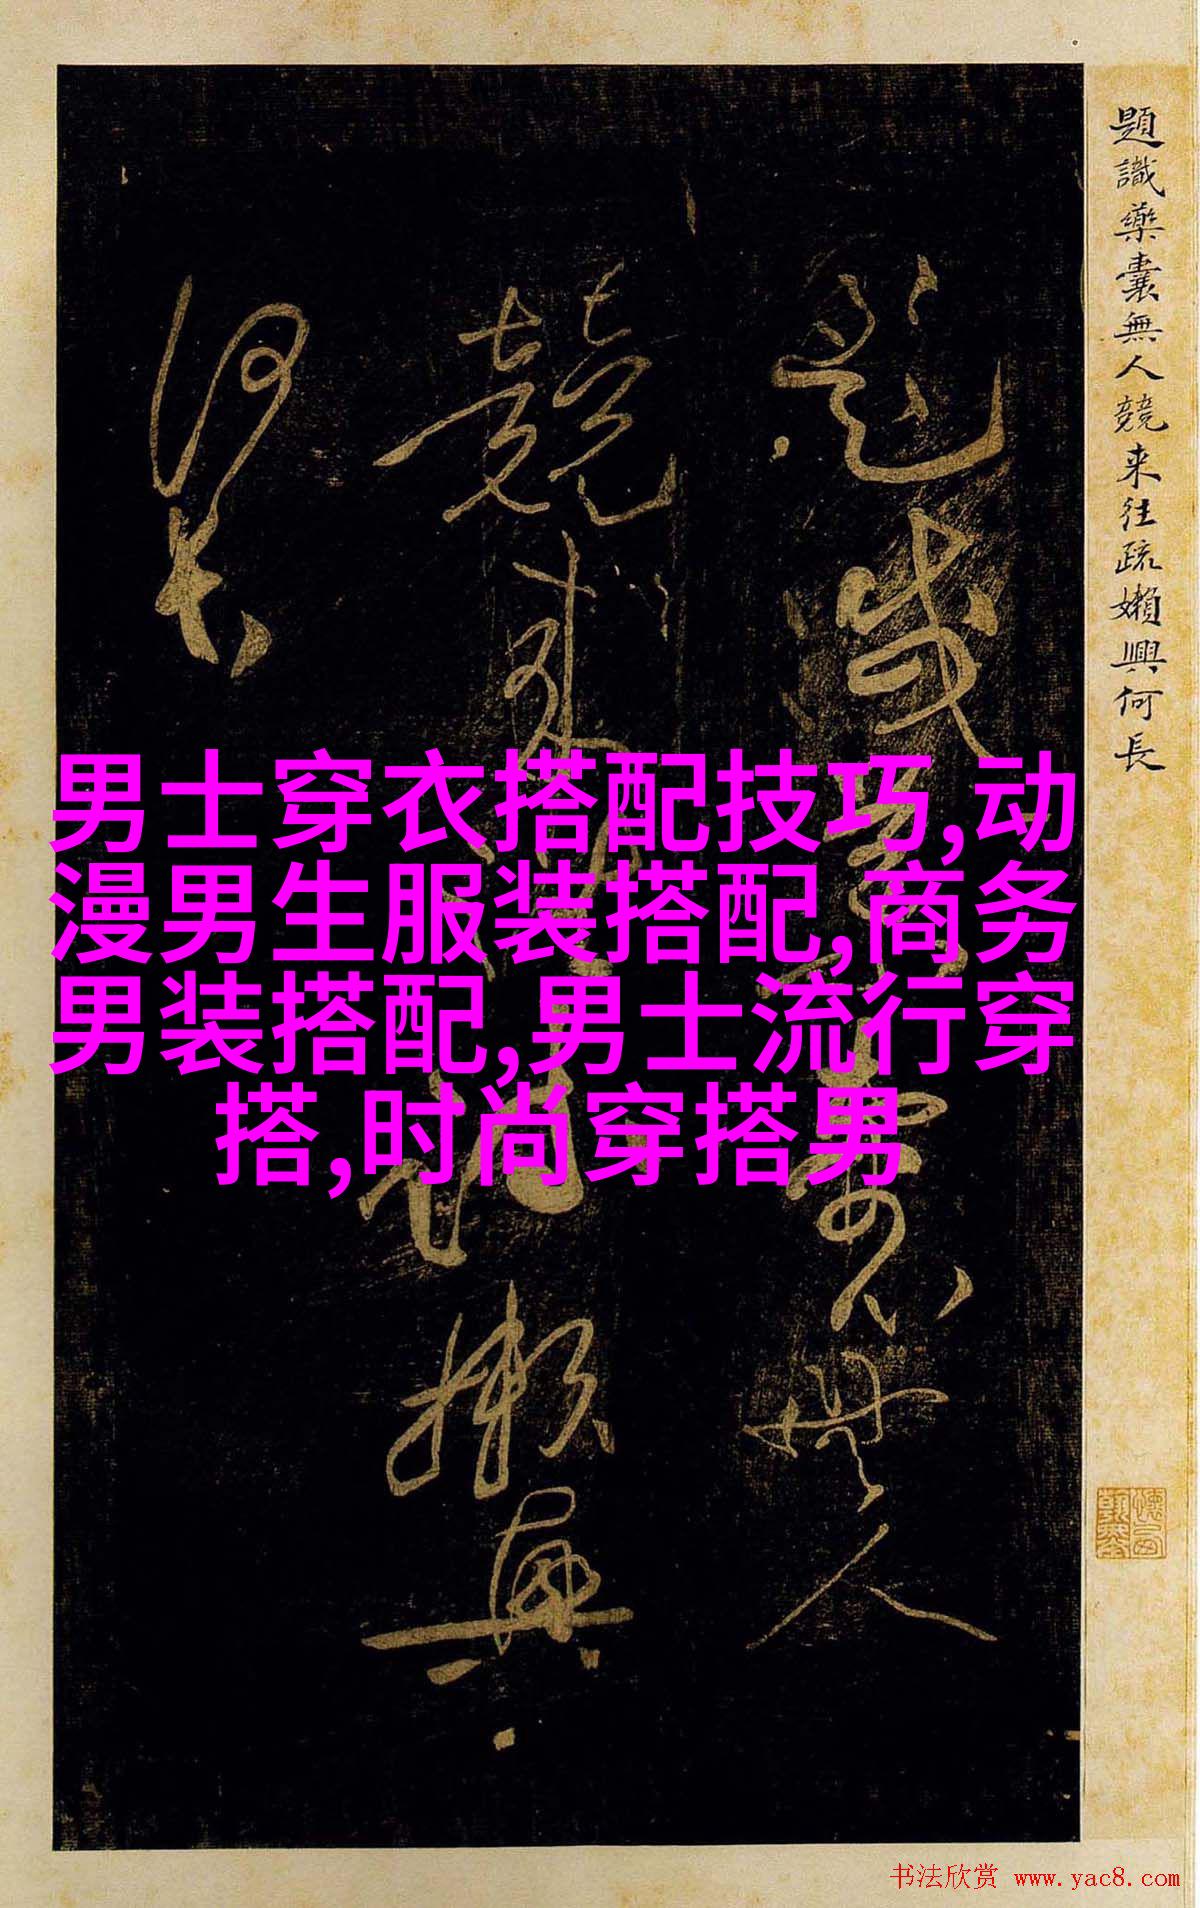 題識藥囊無人競来往疏嬾興何長
題識藥囊無人
競來往疏懶興
何長
男士穿衣搭配技巧,动
漫男生服装搭配,商务
男装搭配,男士流行穿
搭,时尚穿搭男
书法欣赏 www.yac8.com